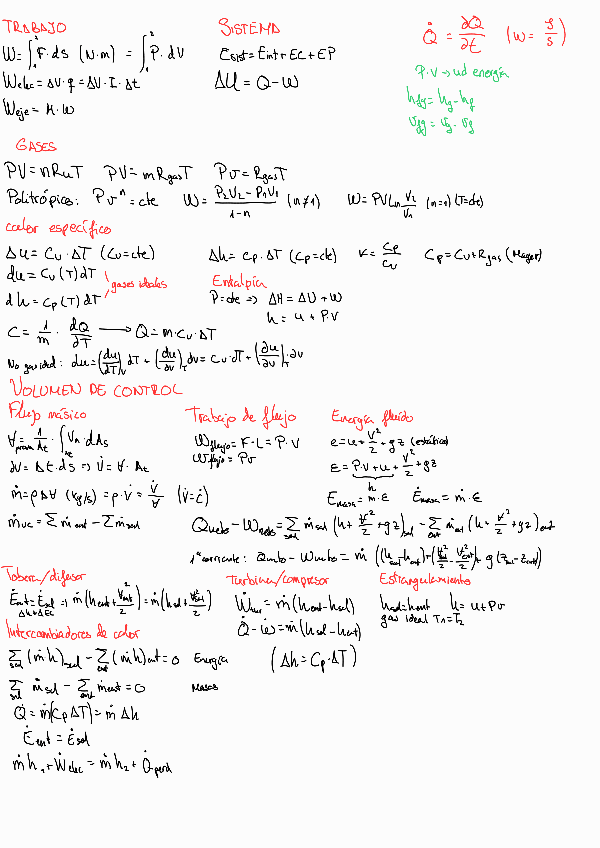 TRABAJO
W = ∫₁² F·ds (N·m) = ∫₁² P·dV
Welec = ΔV·q = ΔV·I·Δt
Weje = M·w
SISTEMA
Esist = Eint + EC + EP
ΔU = Q - W
Q̇ = ∂Q/∂t (W = J/s)
P·V → ud energía
hfg = hg - hf
vfg = vg - vf
GASES
PV = nRuT PV = mRgasT Pv = RgasT
Politrópico: Pvⁿ = cte W = (P₂V₂ - P₁V₁)/(1-n) (n≠1) W = PV Ln V₂/V₁ (n=1) (T=cte)
calor específico
Δu = Cv·ΔT (Cv=cte) Δh = Cp·ΔT (Cp=cte) K = Cp/Cv Cp = Cv + Rgas (Mayer)
du = Cv(T)dT
dh = Cp(T)dT
gases ideales
Entalpía
P=cte => ΔH = ΔU + W
h = u + P·V
C = 1/m · dQ/dT → Q = m·Cv·ΔT
No gas ideal: du = (du/dT)v dT + (du/∂v)T dv = Cv·dT + (∂u/∂v)T ∂v
VOLUMEN DE CONTROL
Flujo másico
dV = At·ds => V̇ = V·At
ṁ = ρAV (kg/s) = ρ·V̇ = V̇/V (V̇=Ċ)
ṁvc = Σ ṁent - Σ ṁsal
Trabajo de flujo
Wflujo = F·L = P·V
wflujo = Pv
Energía fluido
e = u + V²/2 + gz (estática)
ε = P·V + u + V²/2 + gz
h
Emasa = m·ε Ėmasa = ṁ·ε
Qneto - Wneto = Σsal ṁsal (h + V²/2 + gz)sal - Σent ṁent (h + V²/2 + gz)ent
1ª corriente: Qneto - Wneto = ṁ ((hsal - hent) + (V²sal/2 - V²ent/2) + g(zsal - zent))
Tobera/difusor
Ėent = Ėsal => ṁ(hent + V²ent/2) = ṁ(hsal + V²sal/2)
Δh + ΔEc
Turbina/compresor
Ẇtur = ṁ(hent - hsal)
Q̇ - ẇ = ṁ(hsal - hent)
Estrangulamiento
hsal = hent h = u + Pv
gas ideal T₁ = T₂
Intercambiadores de calor
Σsal (ṁh)sal - Σent (ṁh)ent = 0 Energía (Δh = Cp·ΔT)
Σsal ṁsal - Σent ṁent = 0 Masas
Q̇ = ṁ(CpΔT) = ṁΔh
Ėent = Ėsal
ṁh₁ + Ẇelec = ṁh₂ + Q̇perd